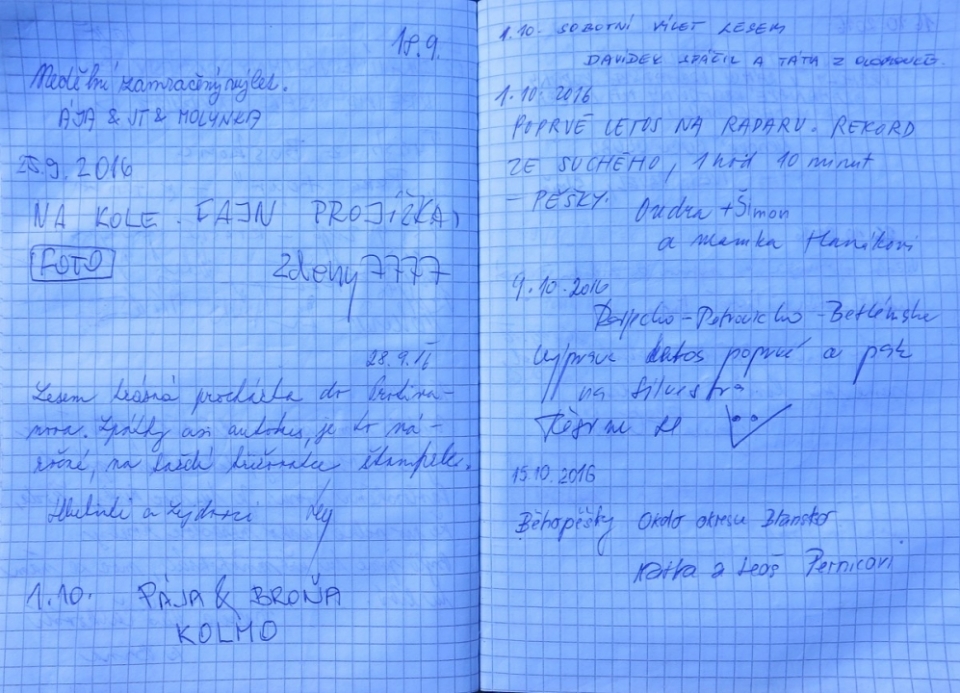 18.9.
Nedělní zamračený výlet.
ÁJA & VT & MOLYNKA
25.9.2016
NA KOLE. FAJN PROJÍŽKA,
FOTO Zdeny7777
28.9.16
Lesem krásná procházka do
Zpátky asi autobus, je to ná-
ročné, na každé křižovatce štamprle.
a
1.10. PÁJA & BROŇA
KOLMO
1.10. SOBOTNÍ VÍLET LESEM
DAVÍDEK SPÁČIL A TÁTA Z OLOMOUCE
1.10.2016
POPRVÉ LETOS NA RADARU. REKORD
ZE SUCHÉHO, 1 hod 10 minut
– PĚŠKY. Ondra + Šimon
a mamka Haníkovi
9.10.2016
Petrovicko - Betlémska
výprava letos poprvé a pak
na Silvestra
Těšíme se
15.10.2016
Běhopěšky Okolo okresu Blansko
Katka a Leoš Pernicovi